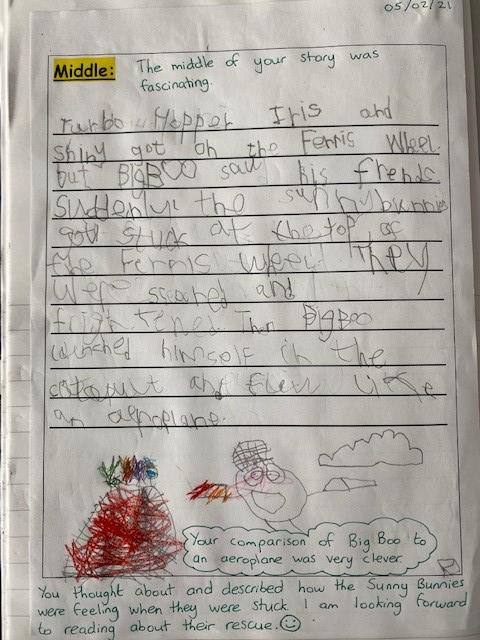 05/02/21
Middle: The middle of your story was
fascinating.
turbo Hopper Iris and
shiny got on the Ferris Wheel.
but BigBOO saw his frends
Suddenly the sunnybunnies
got stuck at the top of
the Ferris wheel. They
were scared and
frightened. Then BigBoo
launched himself in the
catapult and flew like
an aeroplane.
Your comparison of Big Boo to
an aeroplane was very clever.
You thought about and described how the Sunny Bunnies
were feeling when they were stuck. I am looking forward
to reading about their rescue.